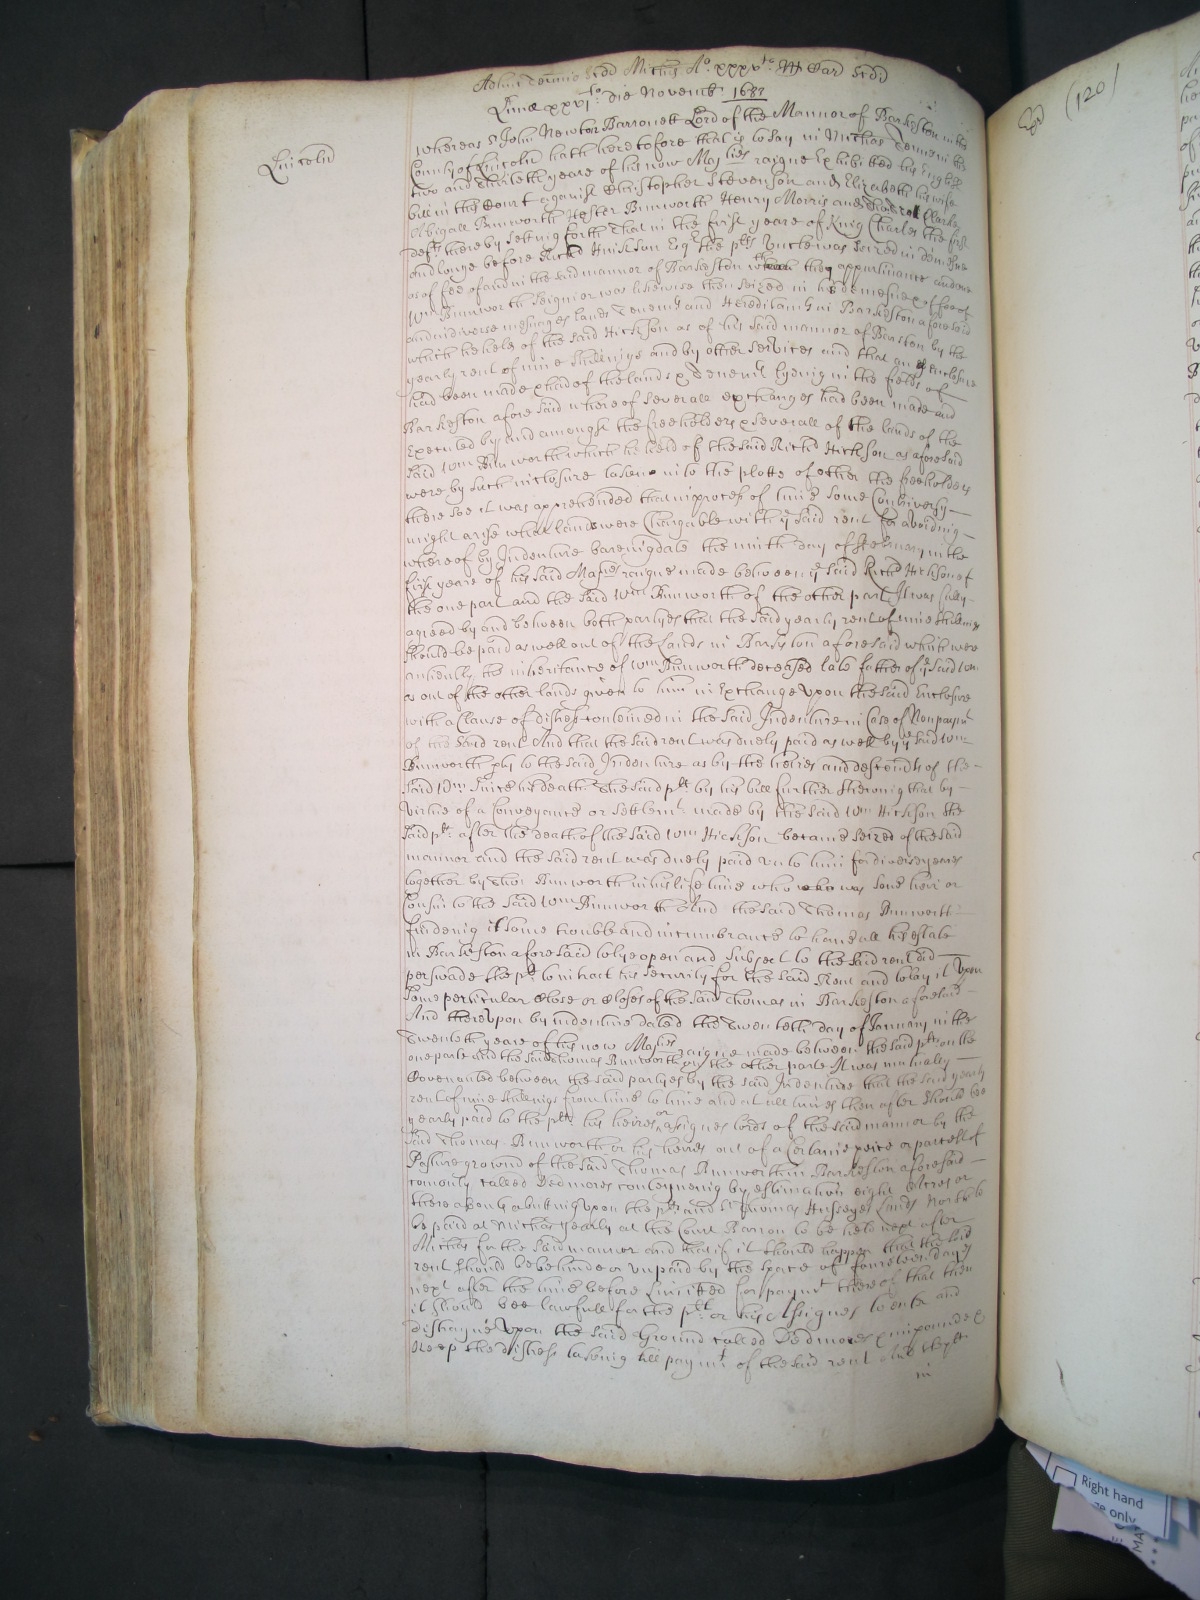 Adhuc Termino Scd Michis Ao xxxvto RRs Card Scdi
Lune xxvito die Novembr 1683
Lincoln
Whereas Sr John Newton Barronett Lord of the Mannor of Barkeston in the
County of Lincoln hath heretofore that is to say in Michas Terme in the
two and Thirtieth yeare of his now Maties raigne Exhibited his English
bill in this Court against Christopher Stevenson and Elizabeth his wife
Abigall Bimworth Hester Bimworth Henry Morris and Clarke
Defts thereby setting forth That in the first yeare of King Charles the first
and longe before Richd Hickson Esqr the plts Uncle was seized in demesne
as of fee of and in the said mannor of Barkeston with the appurtinance and one
Wm Bimworth Seignior was likewise then seized in his demesne as of fee of
and in diverse messuages lands Tenemts and Hereditamts in Barkeston aforesaid
which he held of the said Hickson as of his said mannor of Barston by the
yearly rent of nine shillings and by other services and that an Enclosure
had been made & had of the lands & Tenemts lyeing in the fields of
Barkeston aforesaid whereof severall exchanges had been made and
Executed by and amongst the freeholders & severall of the lands of the
said Wm Bimworth which he held of the said Richd Hickson as aforesaid
were by such inclosure taken into the plotts of other the freeholders
there soe it was apprehended that in process of time some Controversy
might arise what lands were Chargable with ye said rent for avoiding
whereof by Indenture bareing date the ninth day of February in the
first yeare of his said Maties raigne made between ye said Richd Hickson of
the one part and the said Wm Bimworth of the other part It was fully
agreed by and between both partyes that the said yearly rent of nine shillings
should be paid as well out of the lands in Barkston aforesaid which were
antiently the inheritance of Wm Bimworth deceased late father of ye said Wm
as out of the other lands given to him in Exchange upon the said Enclosure
with a Clause of distress conteined in the said Indenture in Case of Nonpaymt
of the said rent And that the said rent was duely paid as well by ye said Wm
Bimworth pty to the said Indenture as by the heires and descendts of the
said Wm since his death The said plt by his bill further shewing that by
virtue of a Conveyance or settlemt made by the said Wm Hickson the
said plt after the death of the said Wm Hickson became seized of the said
mannor and the said rent was duely paid unto him for diverse yeares
together by Tho: Bimworth in his life time who was sone heir or
Cousin to the said Wm Bimworth And the said Thomas Bimworth
findeing it some trouble and incumbrance to have all his estate
in Barkston aforesaid to lye open and subject to the said rent did
perswade the plt to contract his security for the said Rent and to lay it upon
some perticular Close or Closes of the said Thomas in Barkeston aforesaid
And thereupon by indenture dated the Twenteth day of January in the
Twenteth yeare of his now Maties raigne made between the said plt on the
one parte and the said Thomas Bimworth on the other parte It was mutually
Covenanted between the said partyes by the said Indenture that the said yearly
rent of nine shillings from time to time and at all times then after should bee
yearly paid to the plt his heires or assignes lords of the said mannor by the
said Thomas Bimworth or his heires out of a Certaine peice or parcell of
Pasture ground of the said Thomas Bimworth in Barkeston aforesaid
comonly called Dedmores conteyneing by estimation eight Acres or
thereabouts abutting upon the plt and Sr Thomas Husseyes Lands North to
be paid at Michas yearly at the Court Barron to be held next after
Michas for the said mannor and that if it should happen that the said
rent should be behinde or unpaid by the space of fourteen dayes
next after the time before Limitted for paymt thereof that then
it should bee lawfull for the plt or his Assignes to enter and
distrayne upon the said Ground called Dedmores & impound &
keep the distress taking till paymt of the said rent And the plt
in
(120)
Right hand
only